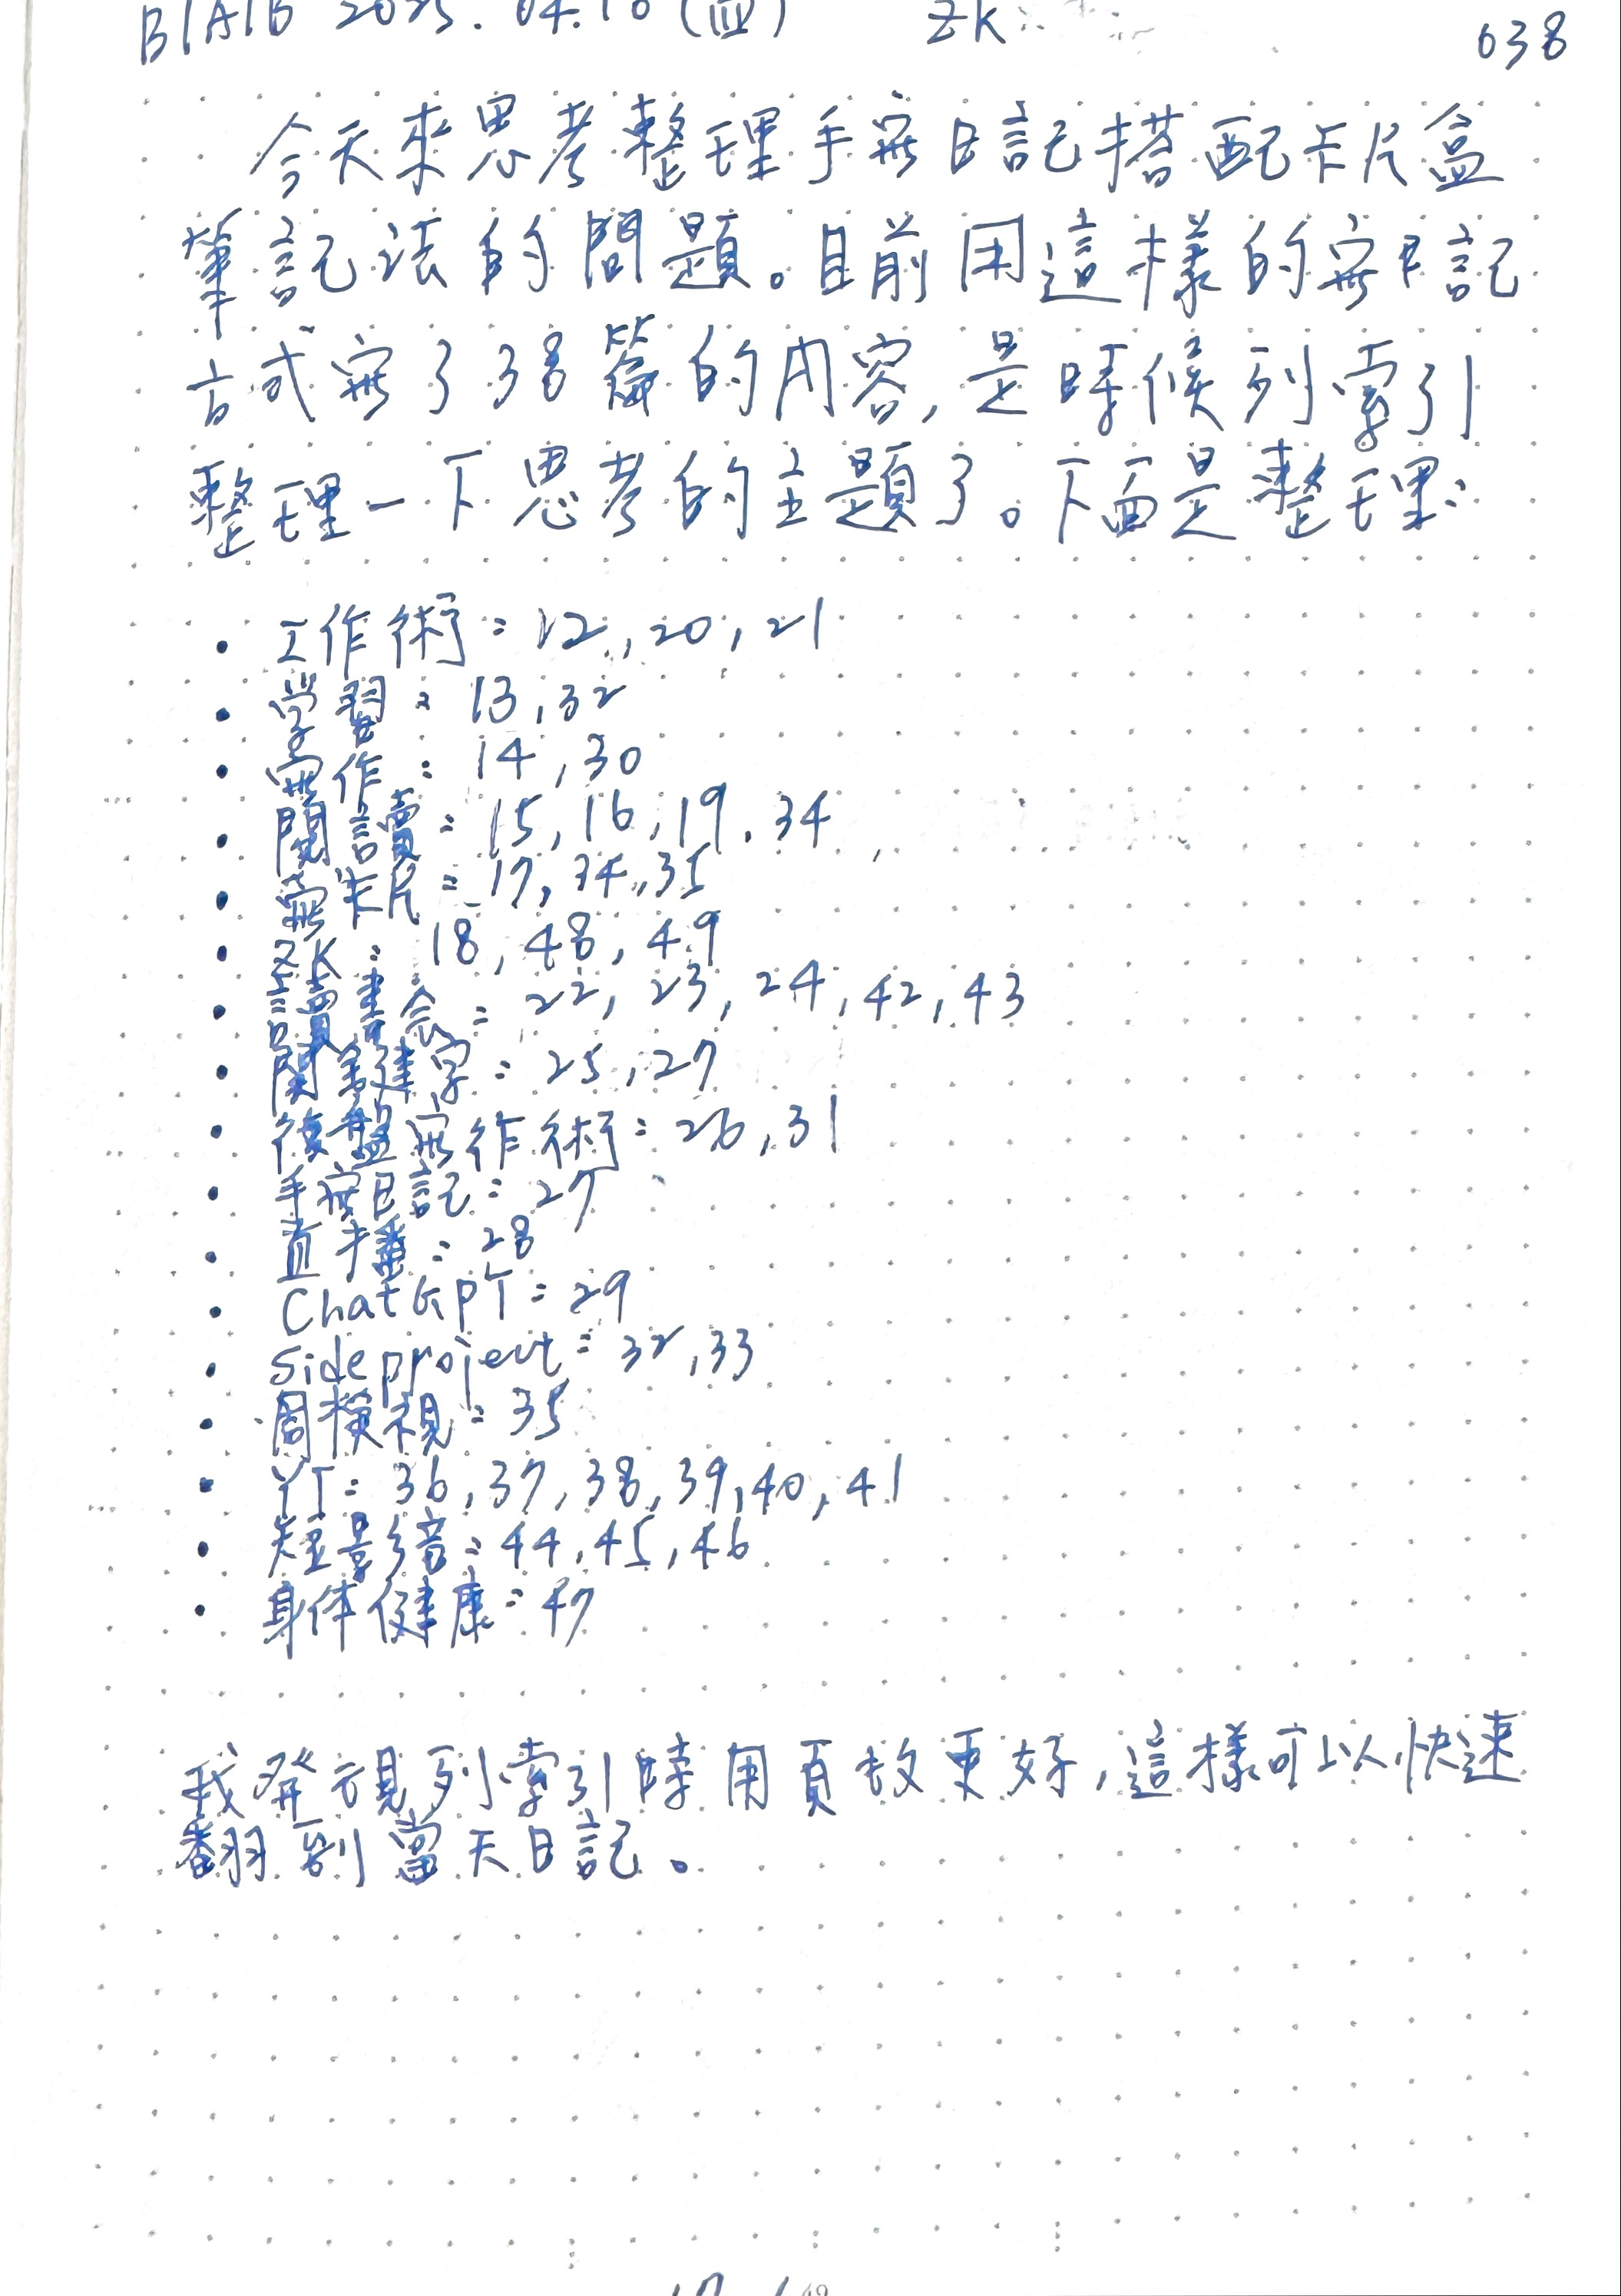 B1A1B 2025.04.10 (四) ZK 038
今天來思考整理手寫日記搭配卡片盒
筆記法的問題。目前用這樣的寫日記
方式寫了38篇的內容,是時候列索引
整理一下思考的主題了。下面是整理:
• 工作術: 12, 20, 21
• 學習: 13, 32
• 寫作: 14, 30
• 閱讀: 15, 16, 19, 34
• 寫卡片: 17, 34, 35
• ZK: 18, 48, 49
• 讀書會: 22, 23, 24, 42, 43
• 關鍵字: 25, 27
• 復盤寫作術: 26, 31
• 手寫日記: 27
• 直播: 28
• ChatGPT: 29
• Side project: 32, 33
• 周檢視: 35
• YT: 36, 37, 38, 39, 40, 41
• 短影音: 44, 45, 46
• 身体健康: 47
我發現列索引時用頁數更好,這樣可以快速
翻到當天日記。
49